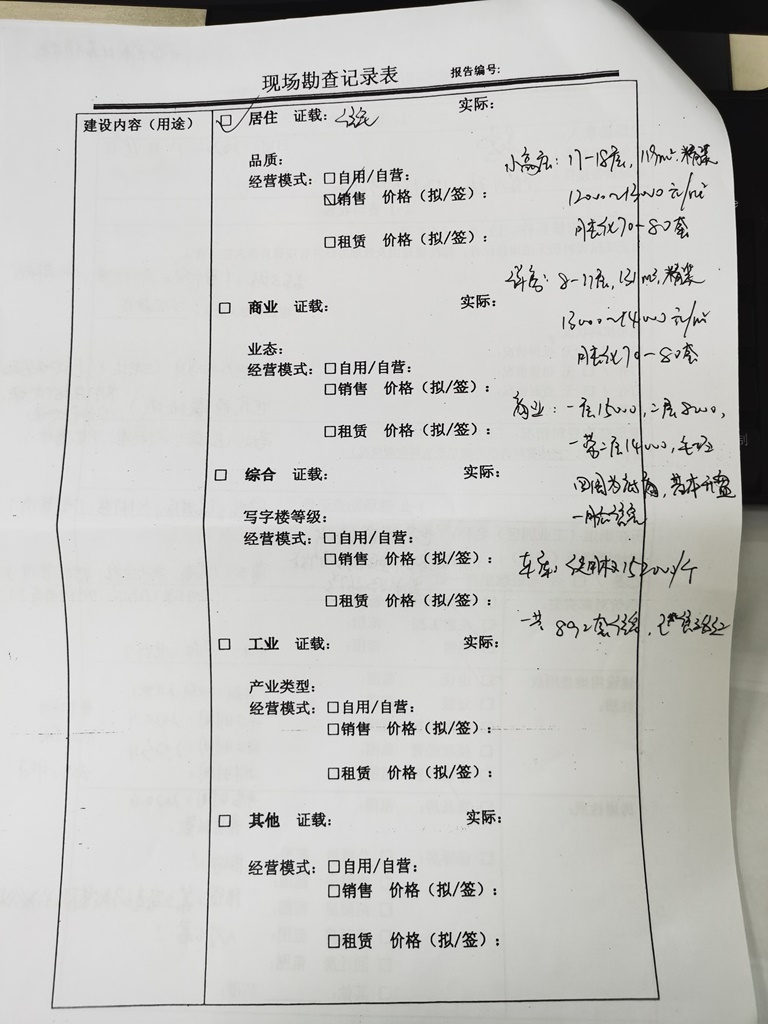 现场勘查记录表 报告编号:
建设内容（用途）
□ 居住 证载: 住宅 实际:
品质:
小高层: 17-18层, 118m², 精装
经营模式: □自用/自营:
□销售 价格（拟/签）: 12000~13000元/m²
月去化70-80套
□租赁 价格（拟/签）:
洋房: 8-11层, 131m², 精装
□ 商业 证载: 实际:
13000~14000元/m²
业态:
月去化70-80套
经营模式: □自用/自营:
□销售 价格（拟/签）:
商业: 一层15000, 二层8000,
□租赁 价格（拟/签）:
一带二层14000, 毛坯
□ 综合 证载: 实际:
四周为底商, 基本开盘
写字楼等级:
一月
经营模式: □自用/自营:
□销售 价格（拟/签）:
车库: 使用权152000/个
□租赁 价格（拟/签）:
一共892套住宅,
□ 工业 证载: 实际:
产业类型:
经营模式: □自用/自营:
□销售 价格（拟/签）:
□租赁 价格（拟/签）:
□ 其他 证载: 实际:
经营模式: □自用/自营:
□销售 价格（拟/签）:
□租赁 价格（拟/签）: